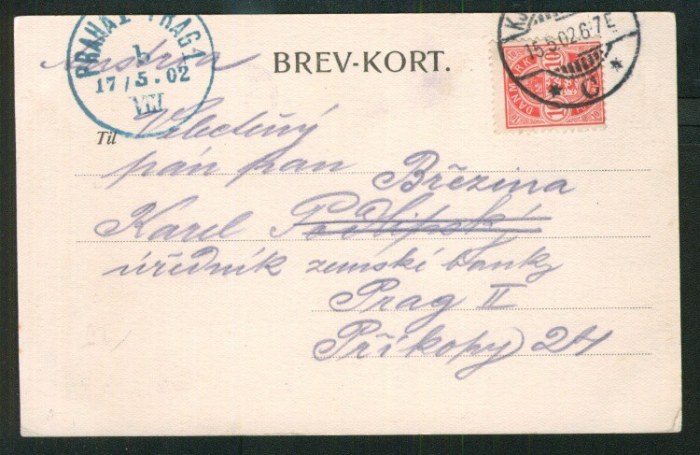 PRAHA 1 PRAG 1
b
17/5.02
VIII
Austria
BREV-KORT.
KJ
15.5.02.6-7E
* C *
DANMARK
10
Til
Veletěný
pán pan
Březina
Karel Podlipský
úředník zemské banky
Prag II
Příkopy 24